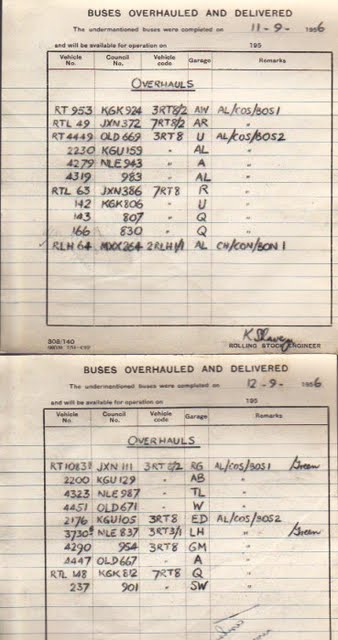 BUSES OVERHAULED AND DELIVERED
The undermentioned buses were completed on 11-9- 1956
and will be available for operation on 195
Vehicle No. Council No. Vehicle code Garage Remarks
OVERHAULS
RT 953 KGK 924 3RT8/2 AW AL/COS/BOS1
RTL 49 JXN 372 7RT8/2 AR "
RT 4449 OLD 669 3RT8 U AL/COS/BOS2
2230 KGU 159 " AL "
4279 NLE 943 " A "
4319 983 " AL "
RTL 63 JXN 386 7RT8 R "
142 KGK 806 " U "
143 807 " Q "
166 830 " Q "
RLH 64 MXX 264 2RLH1/1 AL CN/CON/BON 1
308/140
ROLLING STOCK ENGINEER
BUSES OVERHAULED AND DELIVERED
The undermentioned buses were completed on 12-9- 1956
and will be available for operation on 195
Vehicle No. Council No. Vehicle code Garage Remarks
OVERHAULS
JXN 111 3RT8/2 RG AL/COS/BOS1 Green
2200 KGU 129 " AB "
4323 NLE 987 " TL "
4451 OLD 671 " W "
2176 KGU 105 3RT8 ED AL/COS/BOS2
3730 NLE 837 3RT3/1 LH " Green
4290 954 3RT8 GM "
4447 OLD 667 " A "
RTL 148 KGK 812 7RT8 Q "
237 901 " SW "